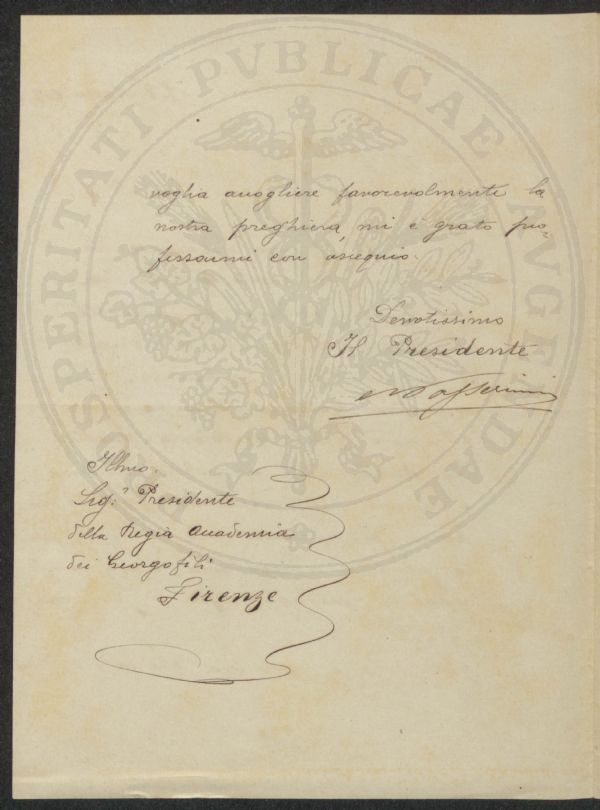 PROSPERITATI PVBLICAE AVGENDAE
voglia accogliere favorevolmente la
nostra preghiera, mi è grato pro=
fessarmi con ossequio.
Devotissimo
Il Presidente
Illmo.
Sig.r Presidente
della Regia Accademia
dei Georgofili
Firenze